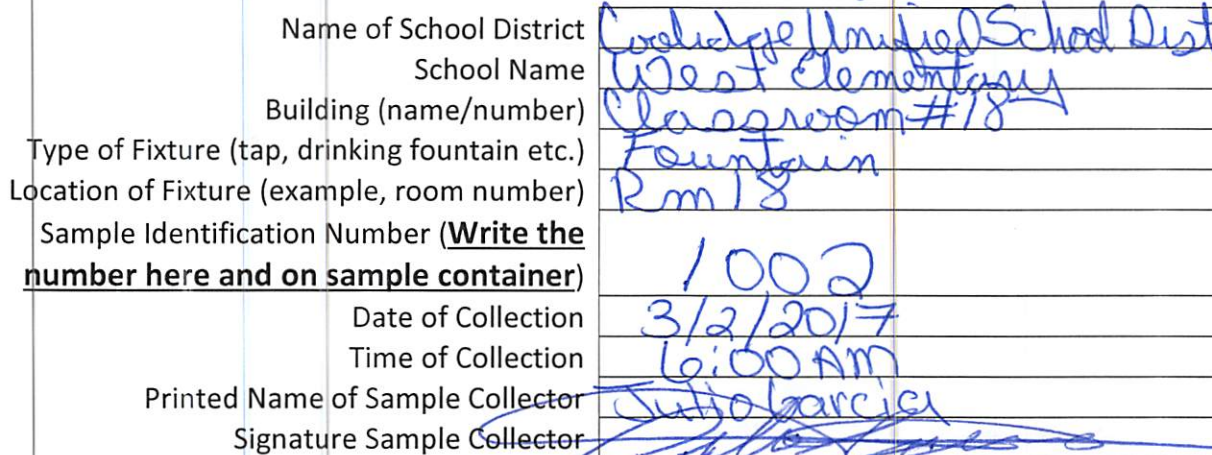 Name of School District Coolidge Unified School Dist
School Name West Elementary
Building (name/number) Classroom #18
Type of Fixture (tap, drinking fountain etc.) Fountain
Location of Fixture (example, room number) Rm 18
Sample Identification Number (Write the
number here and on sample container) 1002
Date of Collection 3/2/2017
Time of Collection 6:00 AM
Printed Name of Sample Collector Julio Garcia
Signature Sample Collector